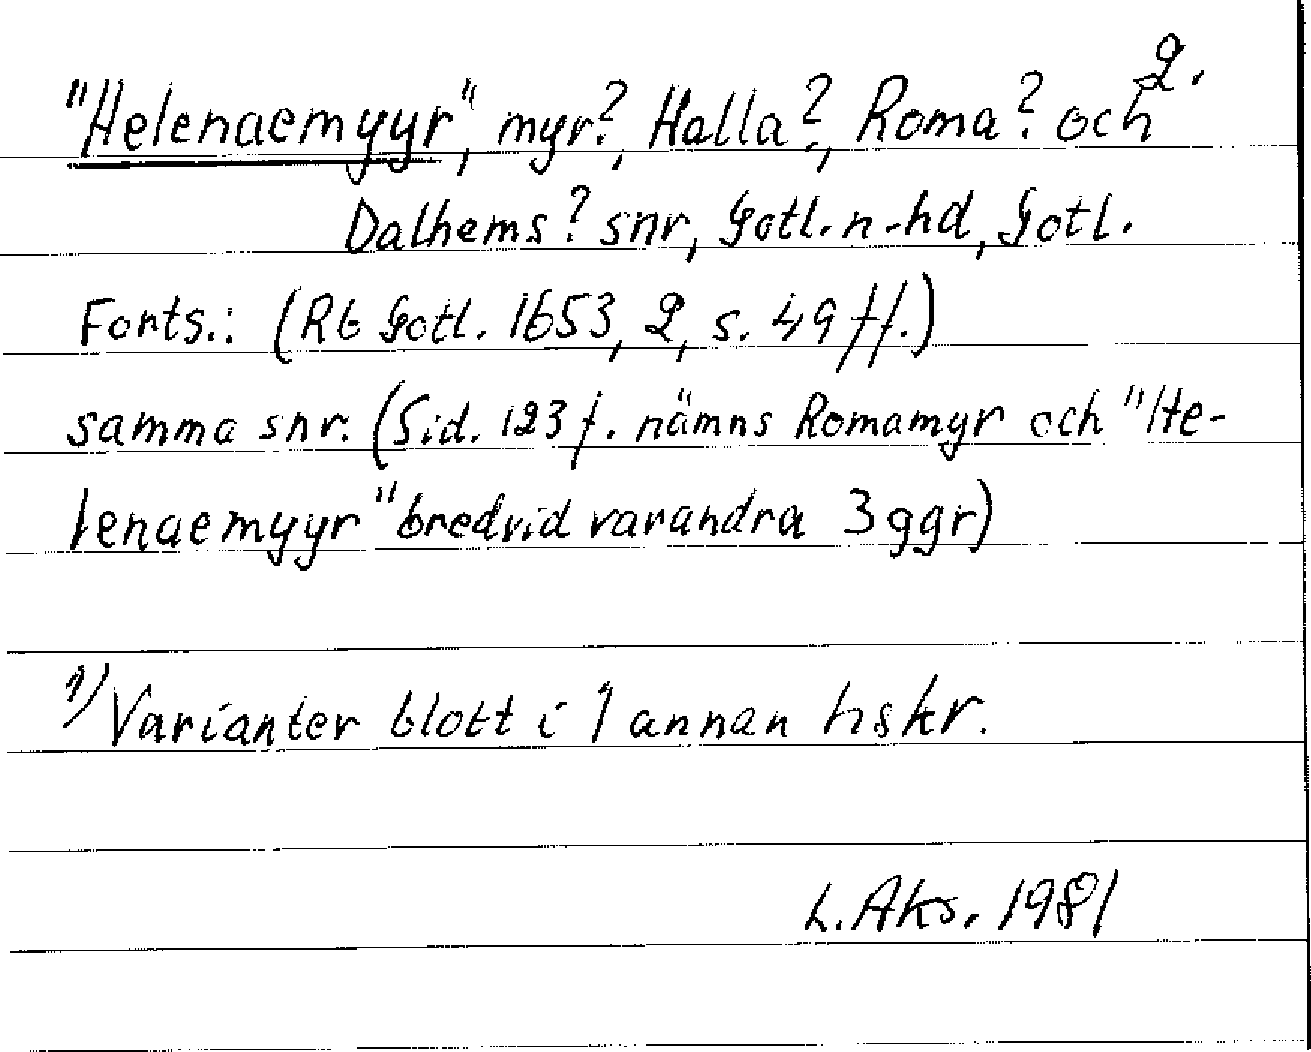 2.
"Helenaemyyr", myr?, Halla?, Roma? och
Dalhems? snr, Gotl. n. hd, Gotl.
Forts.: (Rb Gotl. 1653, 2, s. 49 ff.)
samma snr. (Sid. 123 f. nämns Romamyr och "He-
lenaemyyr" bredvid varandra 3 ggr)
1) Varianter blott i 1 annan hskr.
L. Aks. 1981